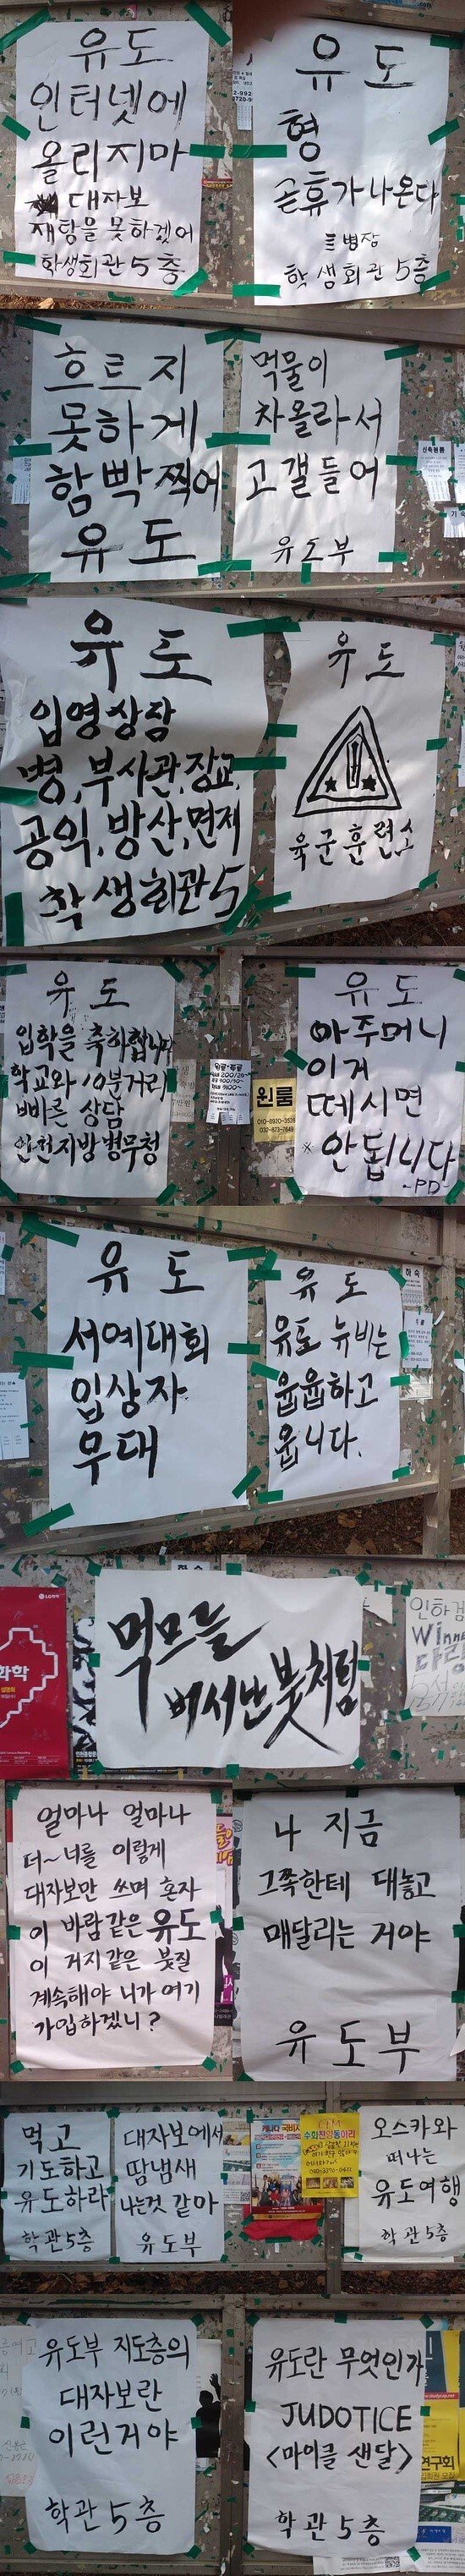 유도
인터넷에
올리지마
대자보
재탕을 못하겠어
학생회관 5층
유도
형
곧휴가나온다
병장
학생회관 5층
흐트지
못하게
함빡찍어
유도
먹물이
차올라서
고갤들어
유도부
유도
입영상담
병,부사관,장교,
공익,방산,면제
학생회관5
유도
육군훈련소
유도
입학을 축하합니다
학교와 10분거리
빠른 상담
인천지방병무청
원룸
010-8920-3526
032-873-7649
유도
아주머니
이거
떼시면
※안됩니다
-PD-
유도
서예대회
입상자
무대
유도
유도 뉴비는
웁웁하고
웁니다.
하숙
먹므를
버서난 붓처럼
화학
인하검
얼마나 얼마나
더~너를 이렇게
대자보만 쓰며 혼자
이 바람같은 유도
이 거지같은 붓질
계속해야 니가 여기
가입하겠니?
나 지금
그쪽한테 대놓고
매달리는 거야
유도부
먹고
기도하고
유도하라
학관5층
대자보에서
땀냄새
나는것 같아
유도부
오스카와
떠나는
유도여행
학관5층
유도부 지도층의
대자보란
이런거야
학관5층
유도란 무엇인가
JUDOTICE
<마이클 샌달>
학관5층
연구회